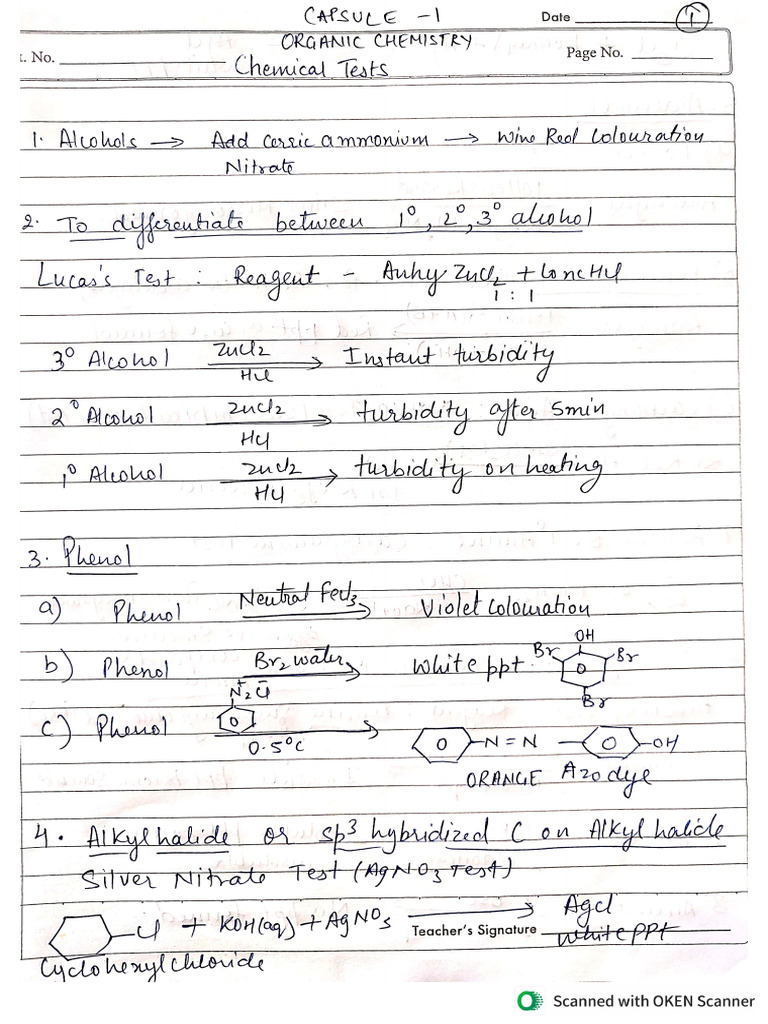 CAPSULE -1 Date ①
ORGANIC CHEMISTRY
t. No. Page No.
Chemical Tests
1. Alcohols → Add cerric ammonium → Wine Red Colouration
Nitrate
2. To differentiate between 1°, 2°, 3° alcohol
Lucas's Test : Reagent - Anhy ZnCl2 + Conc HCl
1 : 1
3° Alcohol ZnCl2 → Instant turbidity
HCl
2° Alcohol ZnCl2 → turbidity after 5min
HCl
1° Alcohol ZnCl2 → turbidity on heating
HCl
3. Phenol
a) Phenol Neutral FeCl3 → Violet Colouration
b) Phenol Br2 water → white ppt. OH Br Br Br
c) Phenol N2+Cl- 0.5°C → -N=N- -OH
ORANGE Azo dye
4. Alkyl halide or sp3 hybridized C on Alkyl halide
Silver Nitrate Test (AgNO3 Test)
-Cl + KOH(aq) + AgNO3 → AgCl
Teacher's Signature White PPT
Cyclohexyl chloride
Scanned with OKEN Scanner